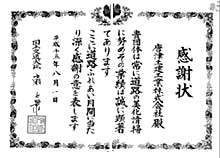 感謝状
唐津土建工業株式会社殿
貴団体は常に道路の美化清掃
に努めその業績は誠に顕著
であります
ここに道路ふれあい月間に当た
り深く感謝の意を表します
平成十五年八月一日
国土交通大臣